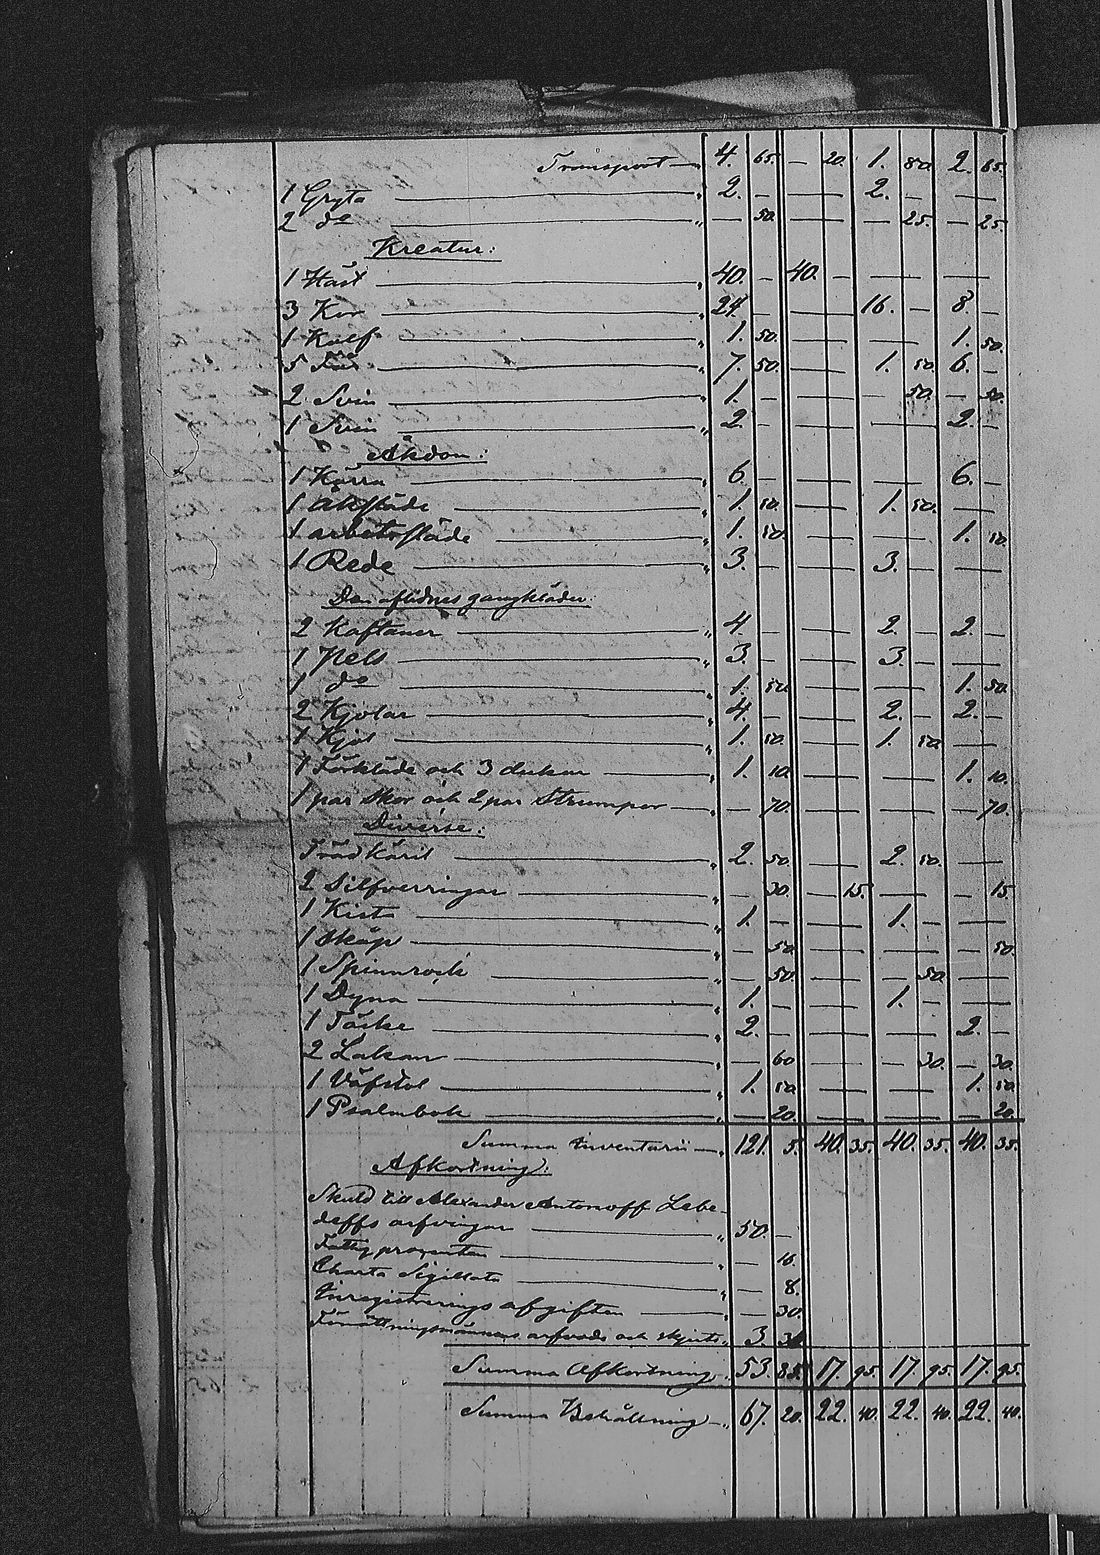 Transport — 4. 65. — 20. 1. 80. 2. 65.
1 Gryta — " 2. — — 2. — —
2 do — " — 50. — — 25. — 25.
Kreatur:
1 Häst — " 40. — 40. — — —
3 Kor — " 24. — — 16. — 8. —
1 Kalf — " 1. 50. — — 1. 50.
5 Får — " 7. 50. — 1. 50. 6. —
2 Svin — " 1. — — — 50. — 50.
1 Svin — " 2. — — — 2. —
Åkdon:
1 Kärra — " 6. — — — 6. —
1 åksläde — " 1. 50. — 1. 50. —
1 arbetssläde — " 1. 50. — — 1. 50.
1 Rede — " 3. — — 3. — —
Den aflidnes gangkläder:
2 Kaftaner — " 4. — — 2. — 2. —
1 Pels — " 3. — — 3. — —
1 do — " 1. 50. — — 1. 50.
2 Kjolar — " 4. — — 2. — 2. —
1 Kjol — " 1. 50. — 1. 50. —
1 Förkläde och 3 dukar — " 1. 10. — — 1. 10.
1 par Skor och 2 par Strumpor — " — 70. — — — 70.
Diverse:
Trädkäril — " 2. 50. — 2. 50. —
2 Silfverringar — " — 30. — 15. — — 15.
1 Kista — " 1. — — 1. — —
1 Skåp — " — 50. — — — 50.
1 Spinnrock — " — 50. — — 50. —
1 Dyna — " 1. — — 1. — —
1 Täcke — " 2. — — — 2. —
2 Lakan — " — 60 — — 30. — 30.
1 Väfstol — " 1. 50. — — 1. 50.
1 Psalmbok — " — 20. — — — 20.
Summa Inventarii — " 121. 5. 40. 35. 40. 35. 40. 35.
Afkortning:
Skuld till Alexander Antonoff Lebe-
deffs arfvingar — " 50. —
Fattigprocenten — " — 16.
Charta Sigillata — " — 8.
Inregistrerings afgiften — " — 30.
Förrättningsmännens arfvode och skjuts " 3.
Summa Afkortning " 53. 85. 17. 95. 17. 95. 17. 95.
Summa Behållning — " 67. 20. 22. 40. 22. 40. 22. 40.